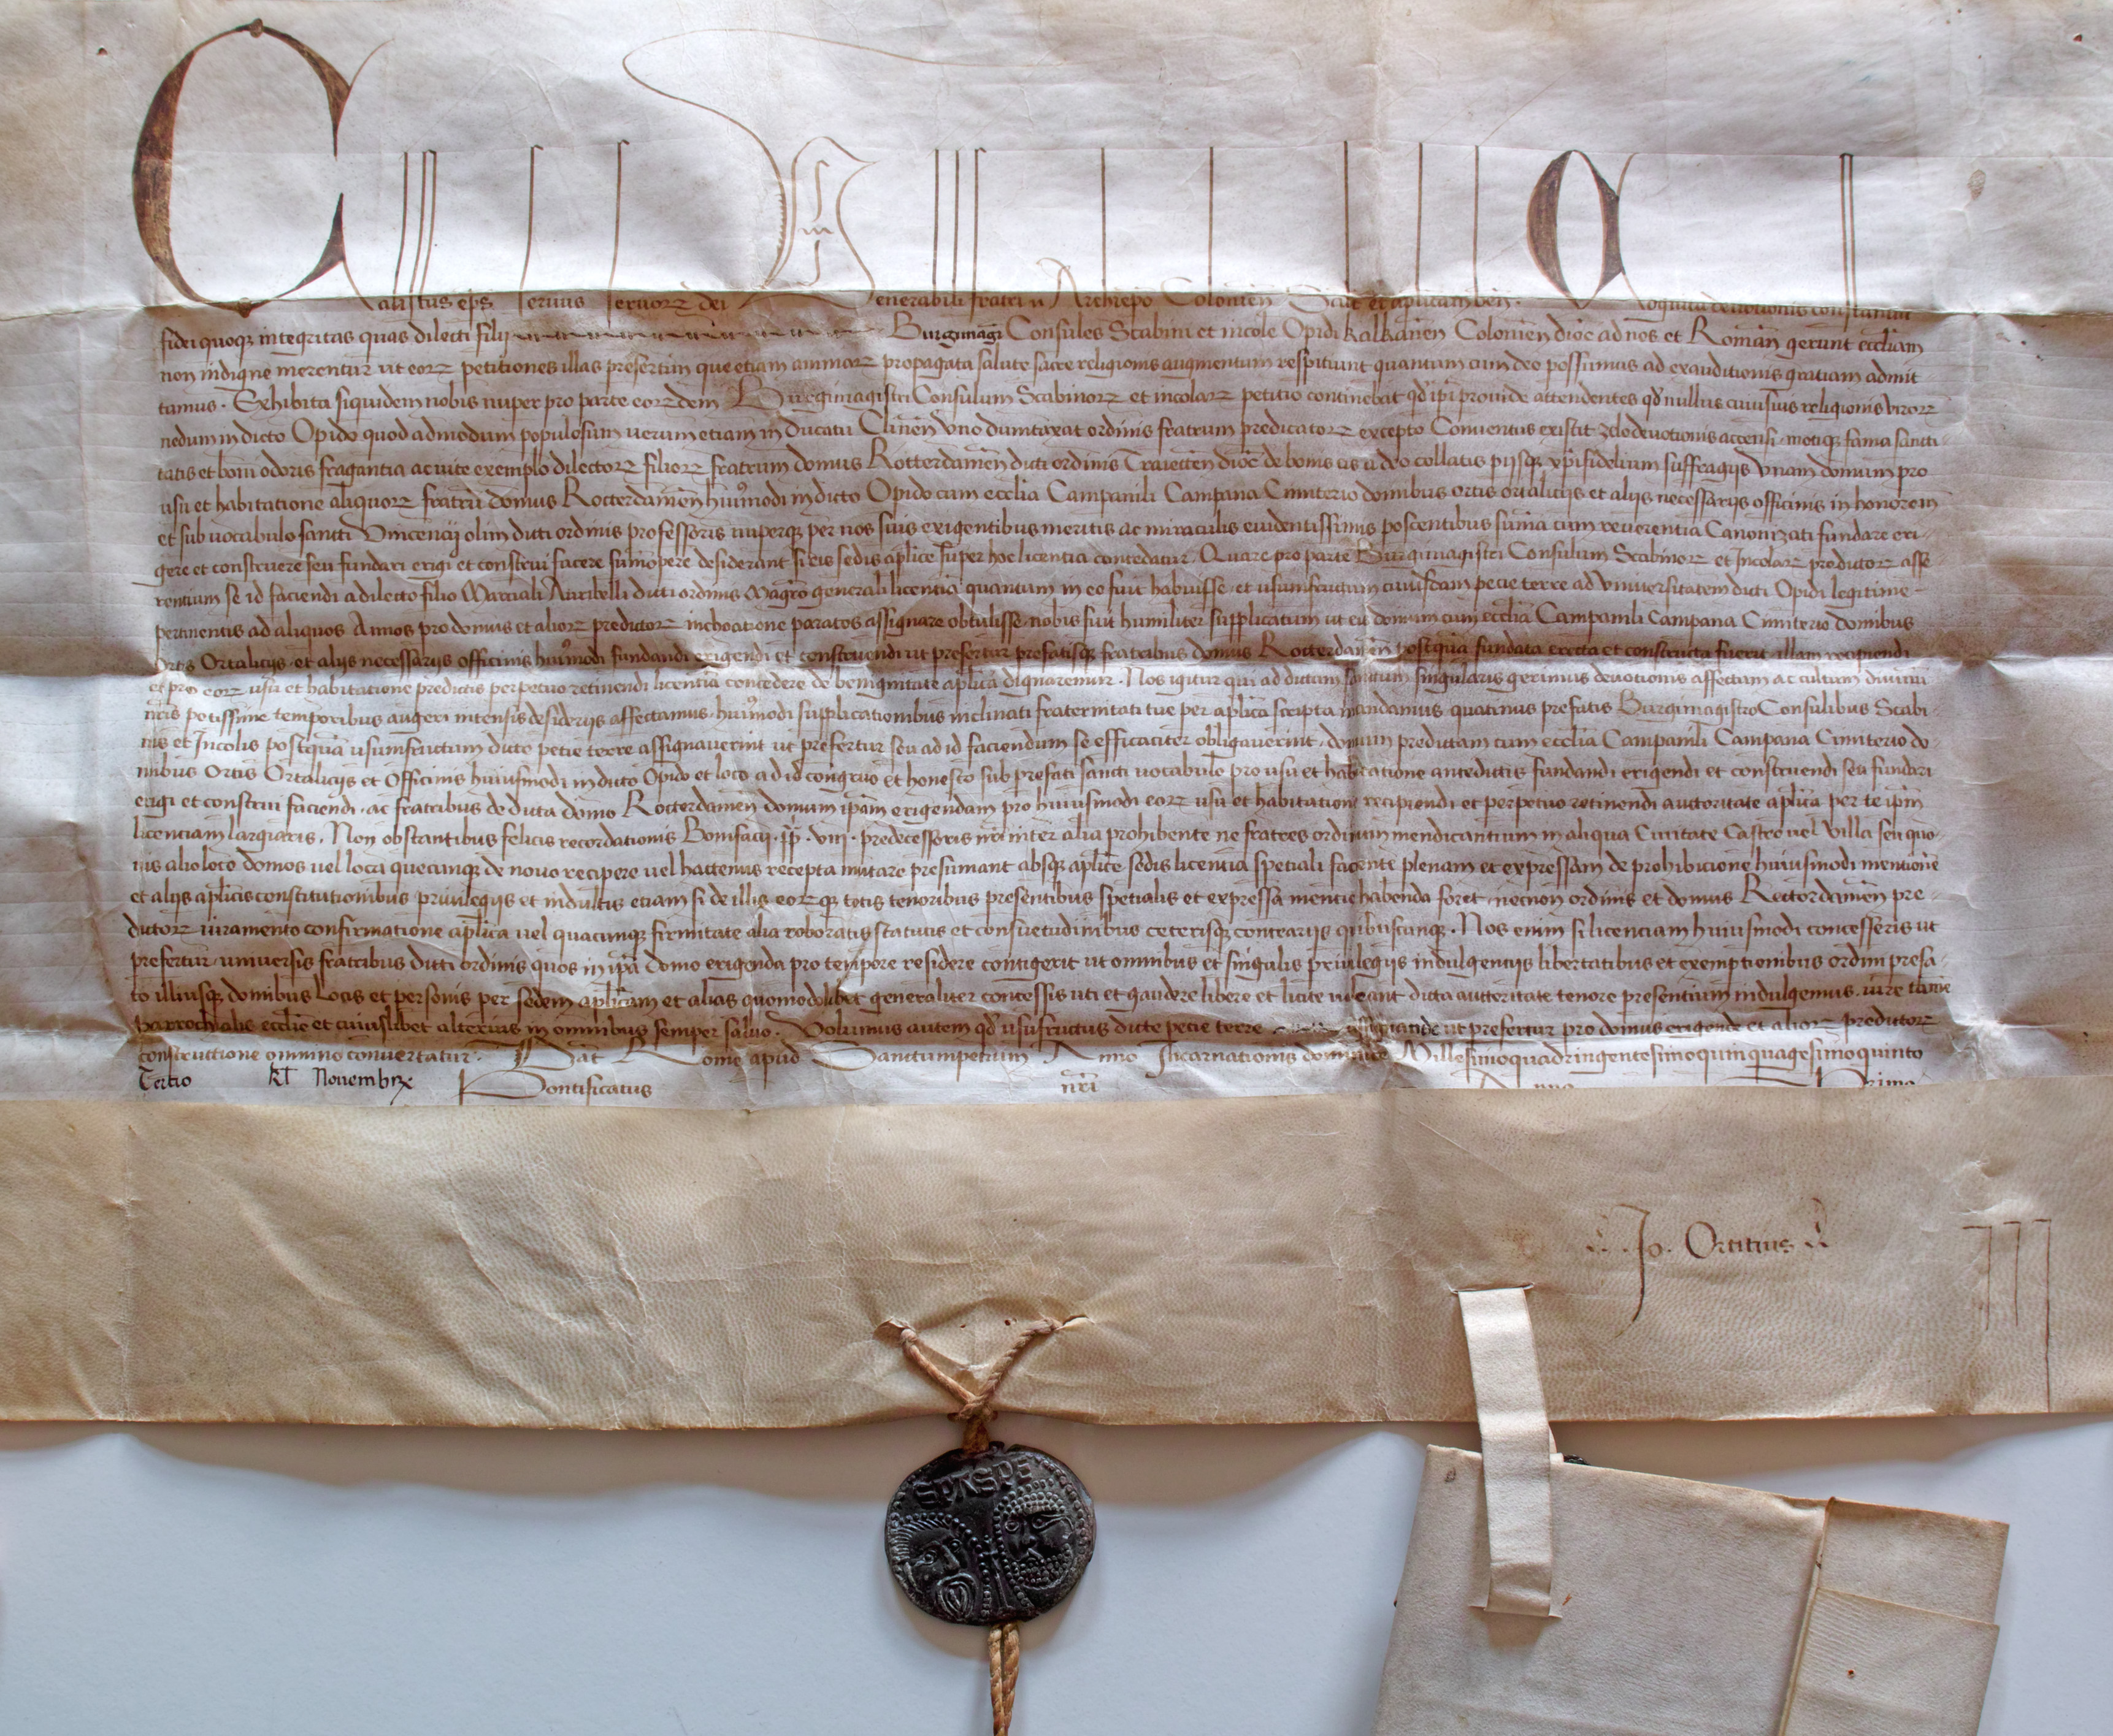 Calistus eps servus servorꝝ dei Venerabili fratri n Archiepo Colonien Salt et aplicam ben.
fidei quoqꝫ integritas quas dilecti filij Burgimagri Consules Scabini et incole Opidi Kalkaren Colonien dioc ad nos et Roman gerunt eccliam
non indigne merentur ut eorꝝ petitiones illas presertim que etiam animarꝝ propagata salute sacre religionis augmentum respitiunt quantum cum deo possumus ad exauditionis gratiam admit
tamus. Exhibita siquidem nobis nuper pro parte eorꝝdem Burgimagistri Consulum Scabinorꝝ et incolarꝝ petitio continebat qd ipi provide attendentes qd nullus cuiusvis religionis virorꝝ
nedum in dicto Opido quod admodum populosum verum etiam in ducatu Cliuen uno dumtaxat ordinis fratrum predicatorꝝ excepto Conventus existit zelo devotionis accensi motiqꝫ fama sancti-
tatis et boni odoris fragantia ac vite exemplo dilectorꝝ filiorꝝ fratrum domus Rotterdamen dicti ordinis Traiecten dioc de bonis eis a deo collatis pijsqꝫ xpifidelium suffragijs unam domum pro
usu et habitatione aliquorꝝ fratru domus Rotterdamen huiꝰmodi in dicto Opido cum ecclia Campanili Campana Cimiterio domibus ortis ortalicijs et alijs necessarijs officinis in honorem
et sub vocabulo sancti Vincencij olim dicti ordinis professoris nuperqꝫ per nos suis exigentibus meritis ac miraculis evidentissimis poscentibus suma cum reverentia Canonizati fundare eri-
gere et construere seu fundari erigi et construi facere sumopere desiderant si eis sedis aplice super hoc licentia concedatur. Quare pro parte Burgimagistri Consulum Scabinorꝝ et Incolarꝝ predictorꝝ asse
rentium se id faciendi a dilecto filio Martiali Auribelli dicti ordinis Magro generali licentia quantum in eo fuit habuisse et usumfructum cuiusdam pecie terre ad Universitatem dicti Opidi legitime
pertinentis ad aliquos Annos pro domus et aliorꝝ predictorꝝ inchoatione paratos assignare obtulisse nobis fuit humiliter supplicatum ut eis domum cum ecclia Campanili Campana Cimiterio domibus
Ortis Ortalicijs et alijs necessarijs officinis huiꝰmodi fundandi erigendi et construendi ut prefertur prefatisqꝫ fratribus domus Rotterdamen postqua fundata erecta et constructa fuerit illam recipiendi
et pro eorꝝ usu et habitatione predictis perpetuo retinendi licentia concedere de benignitate aplica dignaremur. Nos igitur qui ad dictum sanctum singularis gerimus devotionis affectum ac cultum divinu
nris potissime temporibus augeri intensis desiderijs affectamus huiꝰmodi supplicationibus inclinati fraternitati tue per aplica scripta mandamus quatinus prefatis Burgimagistro Consulibus Scabi-
nis et Incolis postqua usumfructum dicte petie terre assignaverint ut prefertur seu ad id faciendum se efficaciter obligaverint domum predictam cum ecclia Campanili Campana Cimiterio do-
mibus Ortis Ortalicijs et Officinis huiusmodi in dicto Opido et loco ad id congruo et honesto sub prefati sancti vocabulo pro usu et habitatione antedictis fundandi erigendi et construendi seu fundari
erigi et construi faciendi ac fratribus de dicta domo Rotterdamen domum ipam erigendam pro huiusmodi eorꝝ usu et habitatione recipiendi et perpetuo retinendi auctoritate aplica per te ipm
licenciam largiaris. Non obstantibus felicis recordationis Bonifacij pp viij predecessoris nri inter alia prohibente ne fratres ordinum mendicantium in aliqua Civitate Castro vel Villa seu quo-
vis alio loco domos vel loca quecunqꝫ de novo recipere vel hactenus recepta mutare presumant absqꝫ aplice sedis licentia spetiali faciente plenam et expressam de prohibicione huiusmodi mentione
et alijs aplicis constitutionibus privilegijs et indultis etiam si de illis eorꝝqꝫ totis tenoribus presentibus spetialis et expressa mentio habenda foret necnon ordinis et domus Rottordamen pre-
dictorꝝ iuramento confirmatione aplica vel quacunqꝫ firmitate alia roboratis statutis et consuetudinibus ceterisqꝫ contrarijs quibuscunqꝫ. Nos enim si licenciam huiusmodi concesseris ut
prefertur universis fratribus dicti ordinis quos in ipa domo erigenda pro tempore residere contigerit ut omnibus et singulis privilegijs indulgentijs libertatibus et exemptionibus ordini prefa-
to illiusqꝫ domibus Locis et personis per sedem aplicam et alias quomodolibet generaliter concessis uti et gaudere libere et licite valeant dicta auctoritate tenore presentium indulgemus. iure tame
parrochialis ecclie et cuiuslibet alterius in omnibus semper salvo. Volumus autem qd ususfructus dicte pecie terre assignande ut prefertur pro domus erigende et aliorꝝ predictorꝝ
constructione omnino convertatur. Dat Rome apud Sanctumpetrum Anno Incarnationis dominice Millesimoquadringentesimoquinquagesimoquinto
Tertio kl Novembrꝝ Pontificatus nri Anno Primo
Jo. Ortitius
SPASPE